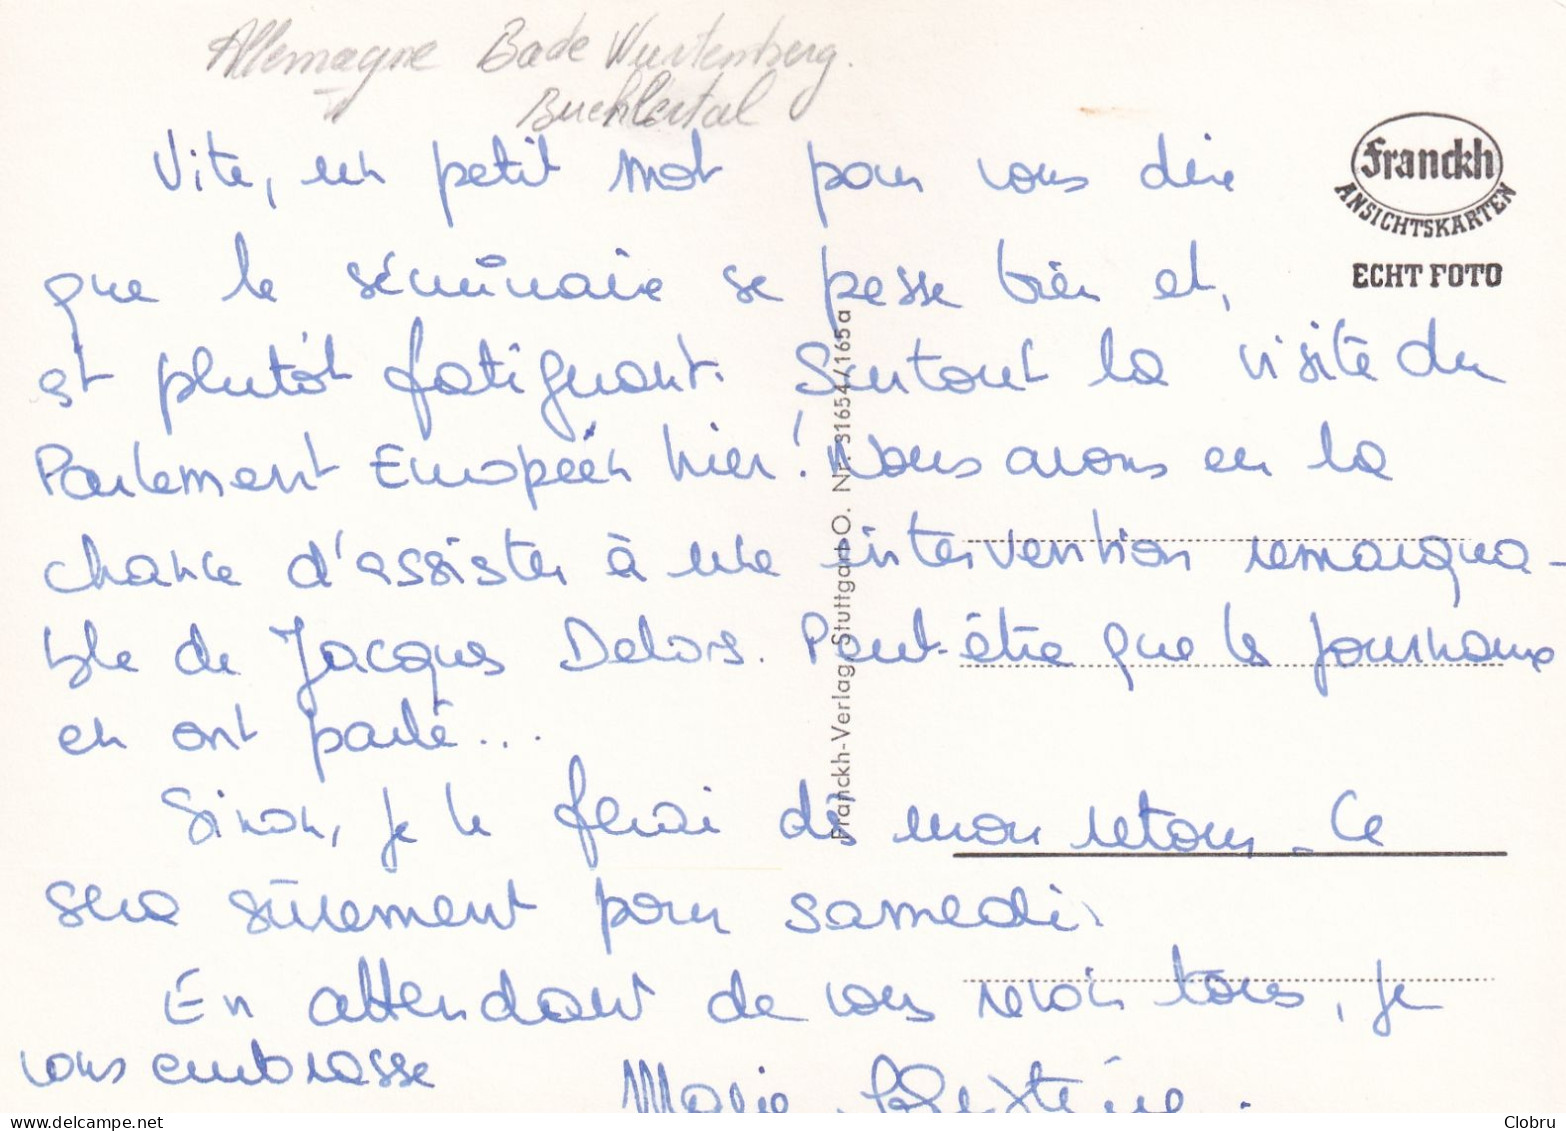 Allemagne Bade Wurtemberg.
Buchlertal
Vite, un petit mot pour vous dire
que le séminaire se passe bien et,
est plutôt fatiguant. Surtout la visite du
Parlement Européen hier ! Nous avons eu la
chance d'assister à une intervention remarqua-
ble de Jacques Delors. Peut-être que les journaux
en ont parlé...
Sinon, je le ferai dès mon retour. Ce
sera sûrement pour samedi.
En attendant de vous revoir tous, je
vous embrasse
Marie
Franckh
ANSICHTSKARTEN
ECHT FOTO
Franckh-Verlag, Stuttgart-O. Nr. 31654/165a
www.delcampe.net
Clobru